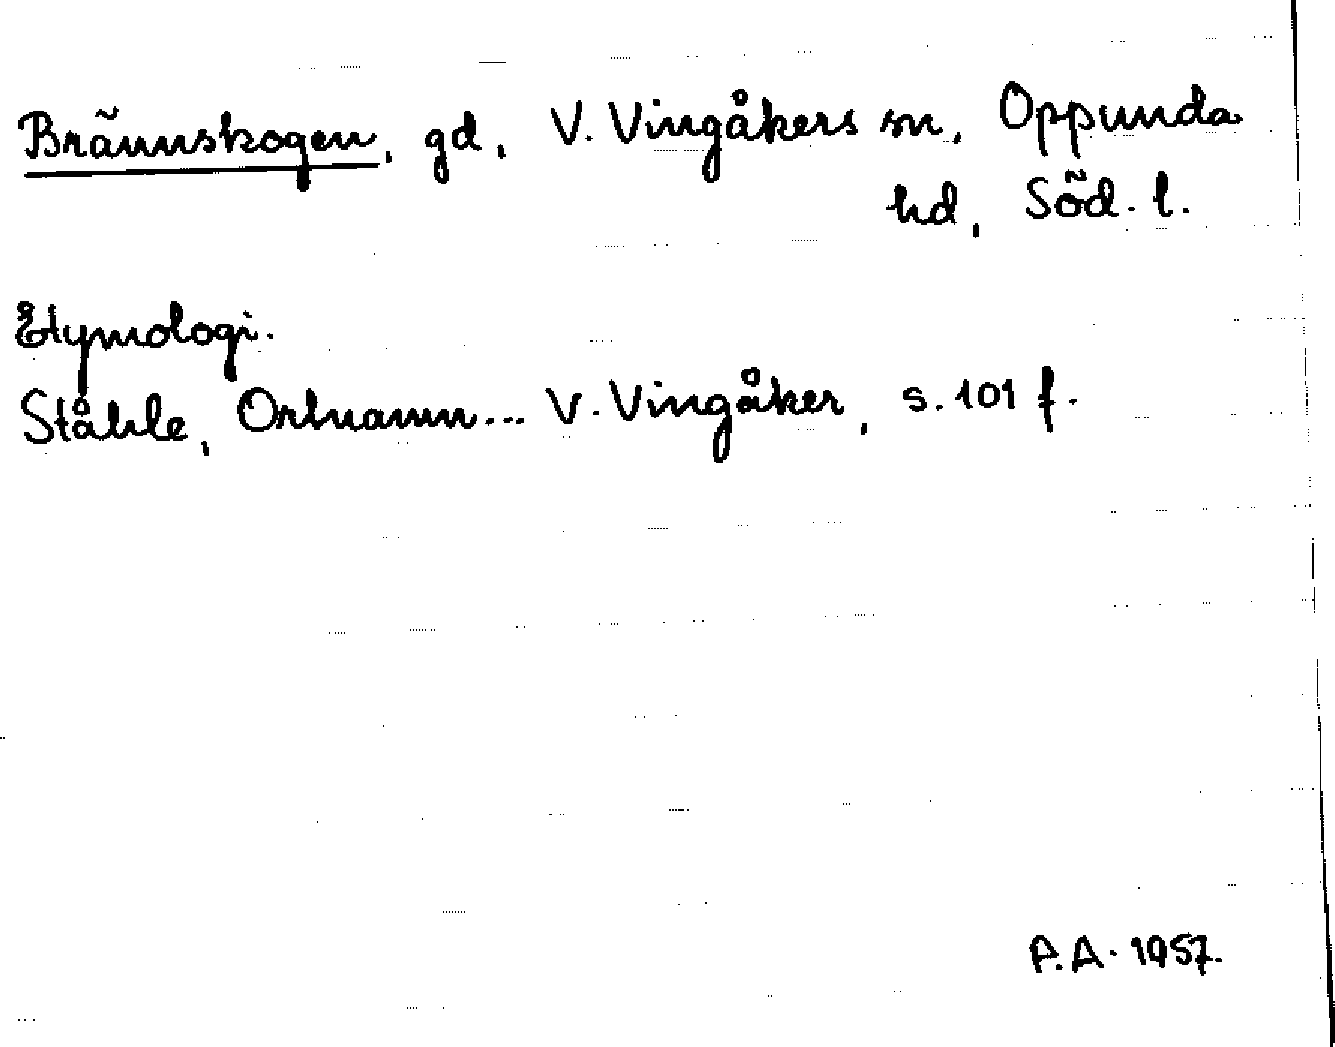 Brännskogen, gd, V. Vingåkers sn, Oppunda
hd, Söd. l.
Etymologi.
Ståhle, Ortnamn... V. Vingåker, s. 101 f.
P.A. 1957.